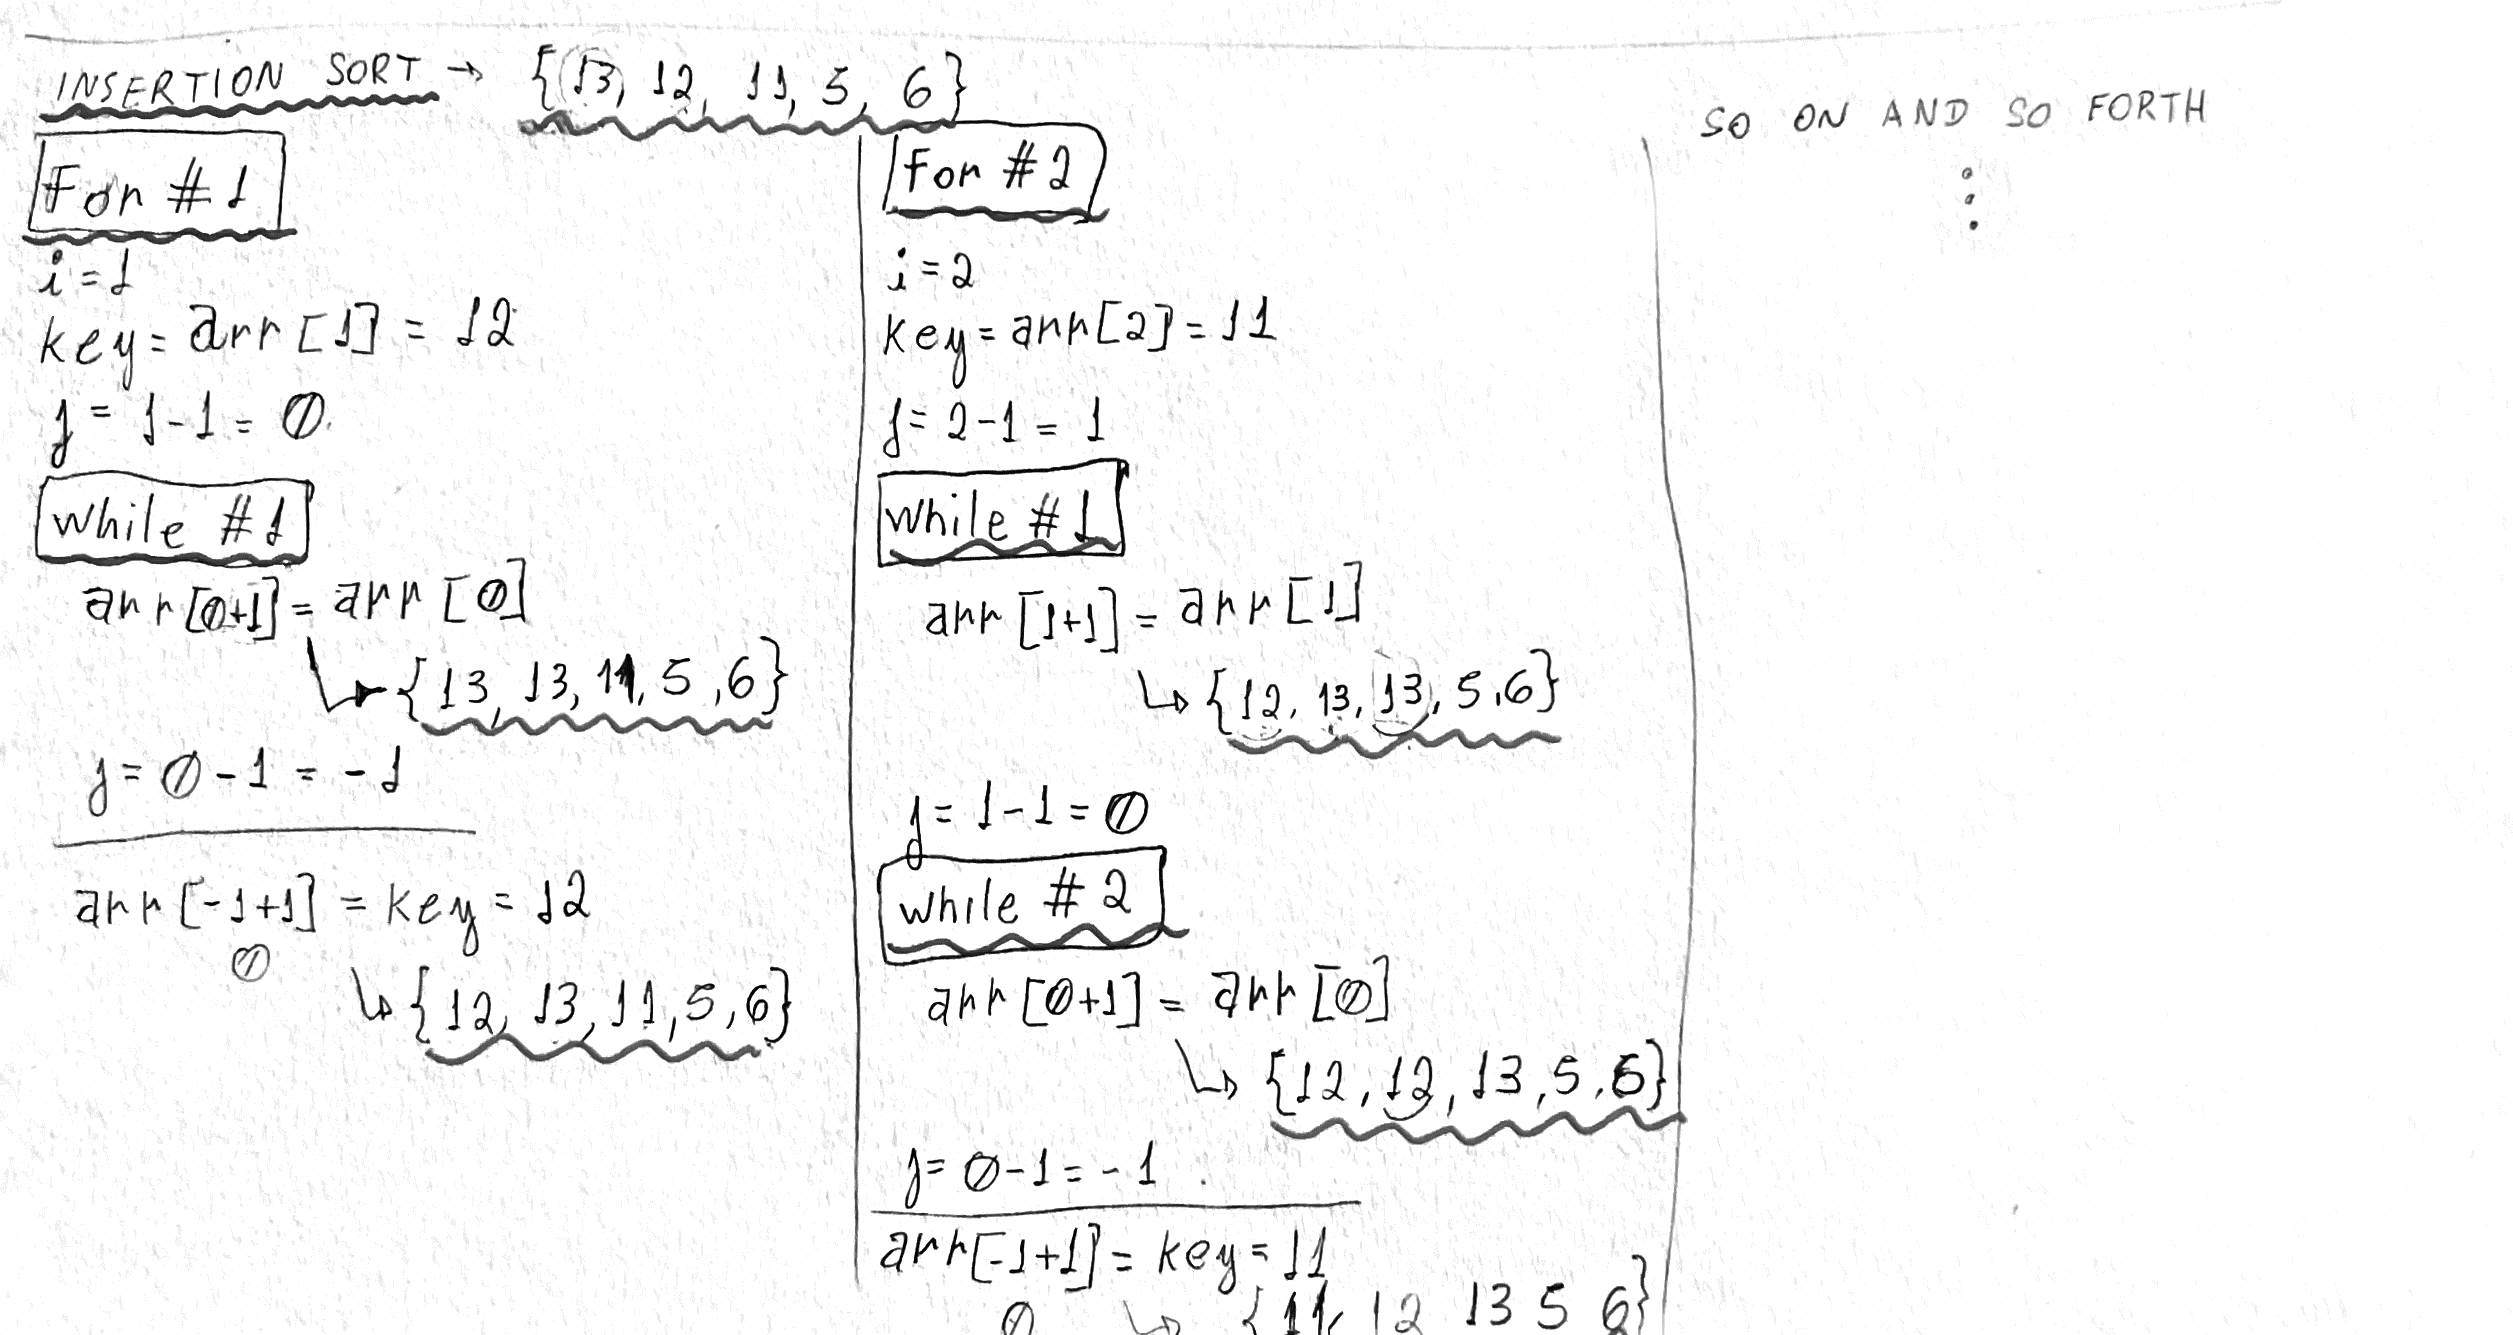 INSERTION SORT → {13, 12, 11, 5, 6}
For #1
i=1
key= arr [1] = 12
j= 1-1 = 0
while #1
arr[0+1] = arr [0]
↳ {13, 13, 11, 5, 6}
j= 0-1 = -1
arr [-1+1] = key = 12
0
↳ {12, 13, 11, 5, 6}
for #2
i=2
key= arr[2] = 11
j= 2-1 = 1
while #1
arr [1+1] = arr [1]
↳ {12, 13, 13, 5, 6}
j= 1-1 = 0
while #2
arr [0+1] = arr [0]
↳ {12, 12, 13, 5, 6}
j= 0-1 = -1
arr[-1+1] = key = 11
0
↳ {11, 12 13 5 6}
SO ON AND SO FORTH